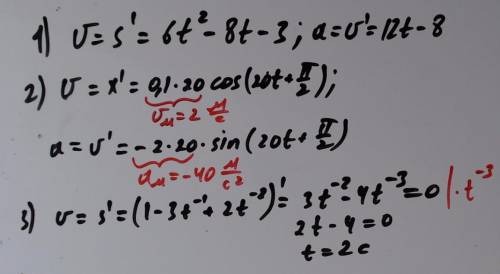 1) v = s' = 6t² - 8t - 3 ; a = v' = 12t - 8
2) v = x' = 0,1·20 cos(20t + π/2);
vₘ = 2 м/с
a = v' = -2·20·sin(20t + π/2)
aₘ = -40 м/с²
3) v = s' = (1 - 3t⁻¹ + 2t⁻²)' = 3t⁻² - 4t⁻³ = 0 | · t⁻³
2t - 4 = 0
t = 2c